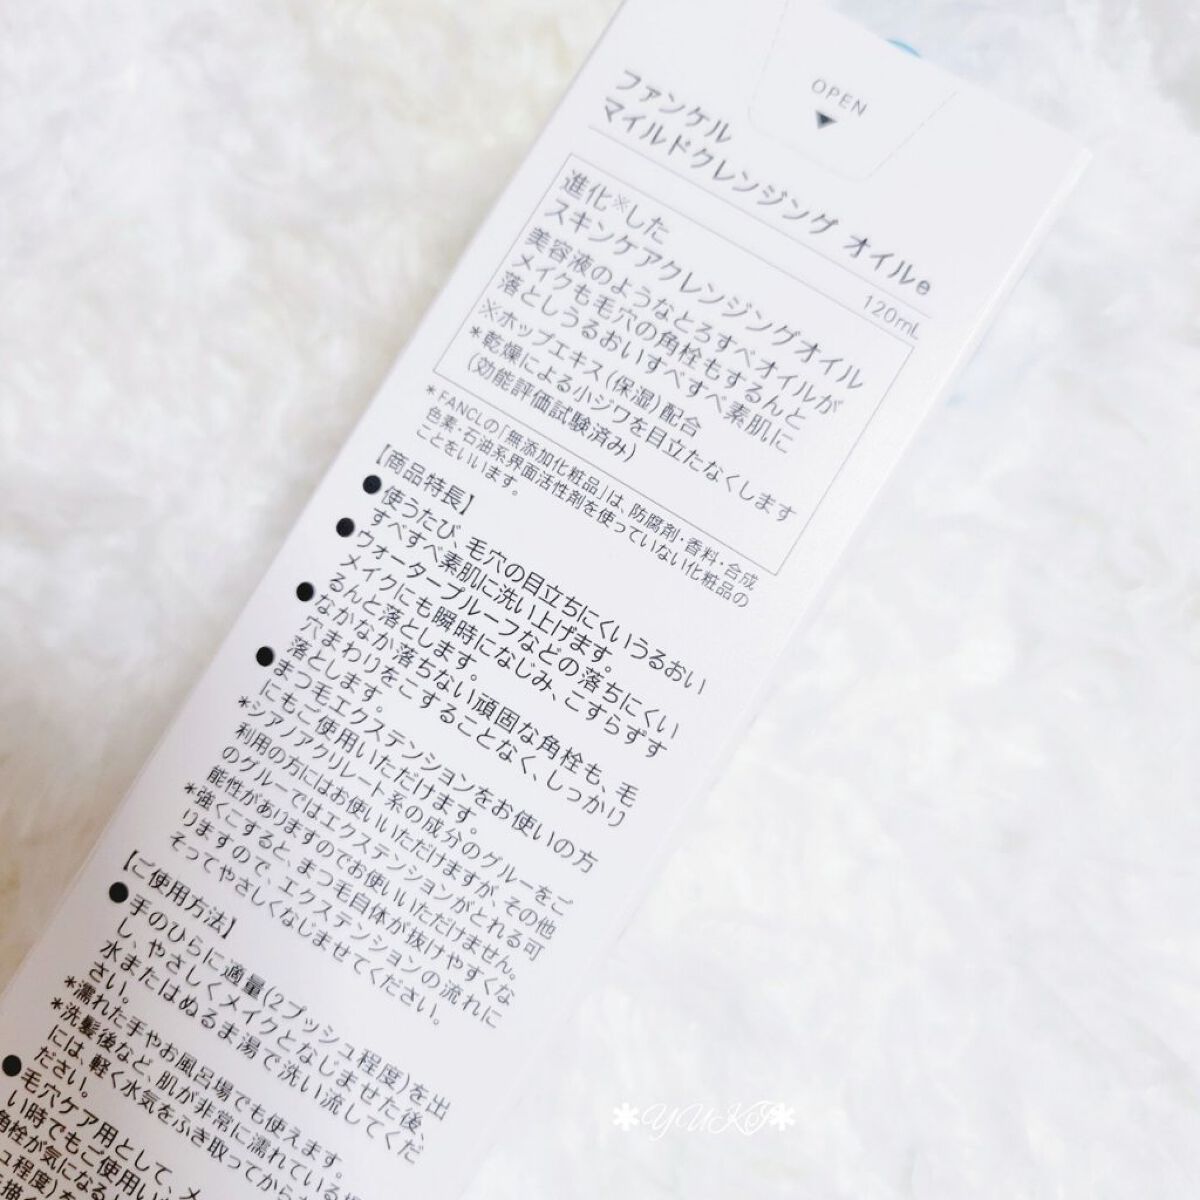 OPEN
▼
ファンケル
マイルドクレンジング オイルe
120mL
進化※した
スキンケアクレンジングオイル
美容液のようなとろすべオイルが
メイクも毛穴の角栓もするんと
落としうるおいすべすべ素肌に
※ホップエキス(保湿)配合
*乾燥による小ジワを目立たなくします
(効能評価試験済み)
*FANCLの「無添加化粧品」は、防腐剤・香料・合成
色素・石油系界面活性剤を使っていない化粧品の
ことをいいます。
【商品特長】
●使うたび、毛穴の目立ちにくいうるおい
すべすべ素肌に洗い上げます。
●ウォータープルーフなどの落ちにくい
メイクにも瞬時になじみ、こすらずす
るんと落とします。
●なかなか落ちない頑固な角栓も、毛
穴まわりをこすることなく、しっかり
落とします。
●まつ毛エクステンションをお使いの方
にもご使用いただけます。
*シアノアクリレート系の成分のグルーをご
利用の方にはお使いいただけますが、その他
のグルーではエクステンションがとれる可
能性がありますのでお使いいただけません。
*強くこすると、まつ毛自体が抜けやすくな
りますので、エクステンションの流れに
そってやさしくなじませてください。
【ご使用方法】
●手のひらに適量(2プッシュ程度)を出
し、やさしくメイクとなじませた後、
水またはぬるま湯で洗い流してくだ
さい。
*濡れた手やお風呂場でも使えます。
*洗髪後など、肌が非常に濡れている
には、軽く水気をふき取ってから
ださい。
●毛穴ケア用として、メ
い時でもご使用い
角栓が気になる
ュ程度)を
*YUKI*